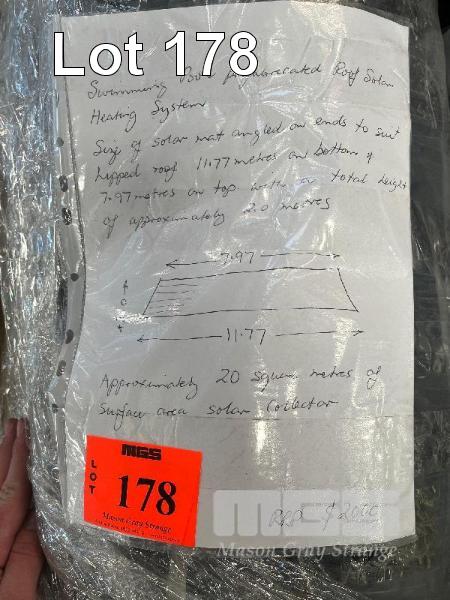 Lot 178
Swimming Pool Roof Solar
Heating System
Size of solar mat angled on ends to suit
hipped roof 11.77 metres on bottom &
7.97 metres on top with a total height
of approximately 2.0 metres
7.97
11.77
Approximately 20 square metres of
surface area solar collector
MGS
LOT
178
Mason Gray Strange
RRP $
MGS
Mason Gray Strange